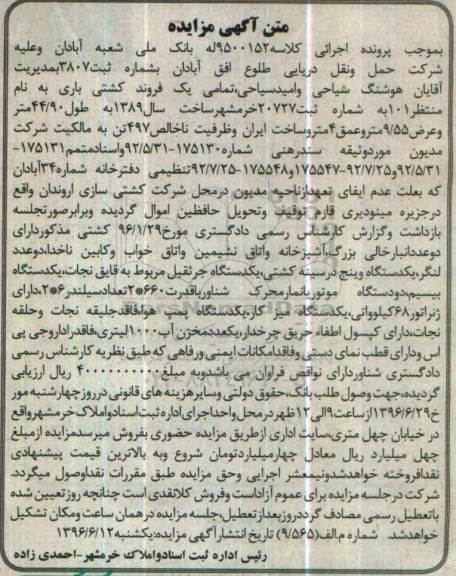 متن آگهی مزایده
بموجب پرونده اجرائی کلاسه۹۵۰۰۱۵۲له بانک ملی شعبه آبادان وعلیه
شرکت حمل ونقل دریایی طلوع افق آبادان بشماره ثبت۳۸۰۷بمدیریت
آقایان هوشنگ شیاحی وامیدسیاحی،تمامی یک فروند کشتی باری به نام
منتظر۱۰۱به شماره ثبت۲۰۷۲۷خرمشهرساخت سال۱۳۸۹به طول۴۴/۹۰متر
وعرض۹/۵۵متروعمق۴متروساخت ایران وظرفیت ناخالص۴۹۷تن به مالکیت شرکت
مدیون موردوثیقه سندرهنی شماره۱۷۵۱۳۰-۹۲/۵/۳۱واسنادمتمم۱۷۵۱۳۱-
۹۲/۵/۳۱و۱۷۵۵۴۷-۹۲/۷/۲۵و۱۷۵۵۴۸-۹۲/۷/۲۵تنظیمی دفترخانه شماره۳۴آبادان
که بعلت عدم ایفای تعهدازناحیه مدیون درمحل شرکت کشتی سازی اروندان واقع
درجزیره مینودیری قارم توقیف وتحویل حافظین اموال گردیده وبرابرصورتجلسه
بازداشت وگزارش کارشناس رسمی دادگستری مورخ۹۶/۱/۲۹ کشتی مذکوردارای
دوعددانبارخالی بزرگ،آشپزخانه واتاق نشیمین واتاق خواب وکابین ناخدا،دوعدد
لنگر،یکدستگاه وینچ درسینه کشتی،یکدستگاه جرثقیل مربوط به قایق نجات،یکدستگاه
بیسیم،دودستگاه موتوریانمارمحرک شناورباقدرت۶۶۰*۲تعدادسیلندر۶*۲،دارای
ژنراتور۶۸کیلوواتی،یکدستگاه میز کار،یکدستگاه پمپ هوافاقدجلیقه نجات وحلقه
نجات،دارای کپسول اطفاء حریق چرخدار،یکعددمخزن آب۱۰۰۰لیتری،فاقدراداروجی پی
اس ودارای قطب نمای دستی وفاقدامکانات ایمنی ورفاهی که طبق نظریه کارشناس رسمی
دادگستری شناوردارای نواقص فراوان می باشدوبه مبلغ۴۰۰۰۰۰۰۰۰۰۰ ریال ارزیابی
گردیده،جهت وصول طلب بانک،حقوق دولتی وسایرهزینه های قانونی درروزچهارشنبه مور
خ۱۳۹۶/۶/۲۹ازساعت۹الی۱۲ظهردرمحل واحداجرای اداره ثبت اسنادواملاک خرمشهرواقع
در خیابان چهل متری،سایت اداری ازطریق مزایده حضوری بفروش میرسدمزایده ازمبلغ
چهل میلیارد ریال معادل چهارمیلیاردتومان شروع وبه بالاترین قیمت پیشنهادی
نقدافروخته خواهدشدونیمعشر اجرایی وحق مزایده طبق مقررات نقداوصول میگردد.
شرکت درجلسه مزایده برای عموم آزاداست وفروش کلانقدی است چنانچه روزتعیین شده
باتعطیل رسمی مصادف گرددروزبعدازتعطیل،جلسه مزایده درهمان ساعت ومکان تشکیل
خواهدشد. شماره م.الف(۹/۵۶۵) تاریخ انتشارآگهی مزایده:یکشنبه۱۳۹۶/۶/۱۲
رئیس اداره ثبت اسنادواملاک خرمشهر-احمدی زاده